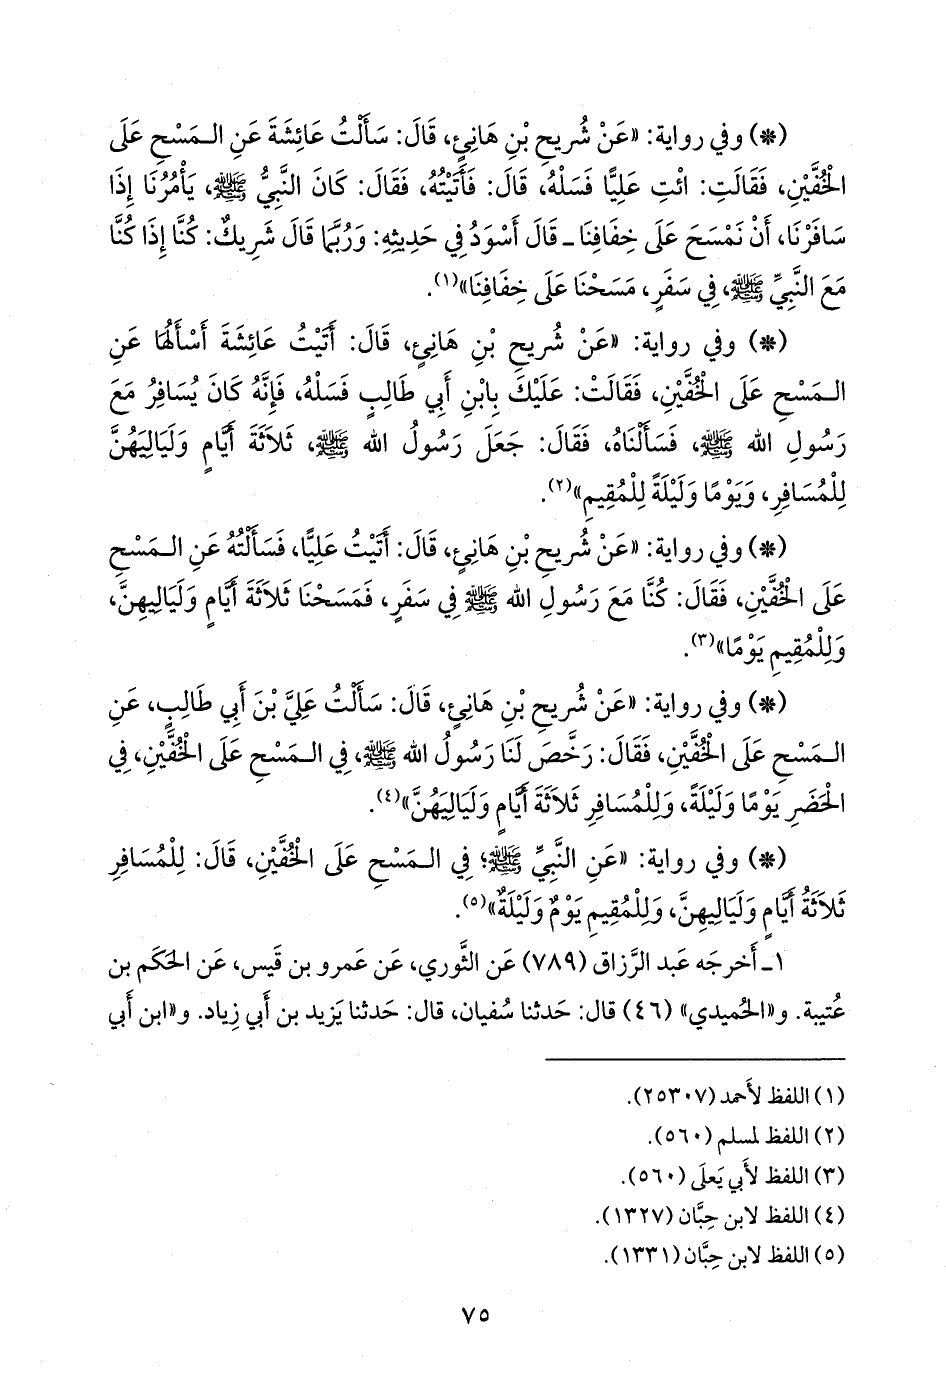 (*) وفي رواية: «عَنْ شُرَيحِ بْنِ هَانِئٍ، قَالَ: سَأَلْتُ عَائِشَةَ عَنِ الـمَسْحِ عَلَى
الْخُفَّيْنِ، فَقَالَتِ: ائْتِ عَلِيًّا فَسَلْهُ، قَالَ: فَأَتَيْتُهُ، فَقَالَ: كَانَ النَّبِيُّ ﷺ، يَأْمُرُنَا إِذَا
سَافَرْنَا، أَنْ نَمْسَحَ عَلَى خِفَافِنَا ـ قَالَ أَسْوَدُ فِي حَدِيثِهِ: وَرُبَّمَا قَالَ شَرِيكٌ: كُنَّا إِذَا كُنَّا
مَعَ النَّبِيِّ ﷺ، فِي سَفَرٍ، مَسَحْنَا عَلَى خِفَافِنَا»(١).
(*) وفي رواية: «عَنْ شُرَيحِ بْنِ هَانِئٍ، قَالَ: أَتَيْتُ عَائِشَةَ أَسْأَلُهَا عَنِ
الـمَسْحِ عَلَى الْخُفَّيْنِ، فَقَالَتْ: عَلَيْكَ بِابْنِ أَبِي طَالِبٍ فَسَلْهُ، فَإِنَّهُ كَانَ يُسَافِرُ مَعَ
رَسُولِ الله ﷺ، فَسَأَلْنَاهُ، فَقَالَ: جَعَلَ رَسُولُ الله ﷺ، ثَلَاثَةَ أَيَّامٍ وَلَيَالِيَهُنَّ
لِلْمُسَافِرِ، وَيَوْمًا وَلَيْلَةً لِلْمُقِيمِ»(٢).
(*) وفي رواية: «عَنْ شُرَيحِ بْنِ هَانِئٍ، قَالَ: أَتَيْتُ عَلِيًّا، فَسَأَلْتُهُ عَنِ الـمَسْحِ
عَلَى الْخُفَّيْنِ، فَقَالَ: كُنَّا مَعَ رَسُولِ الله ﷺ فِي سَفَرٍ، فَمَسَحْنَا ثَلَاثَةَ أَيَّامٍ وَلَيَالِيهِنَّ،
وَلِلْمُقِيمِ يَوْمًا»(٣).
(*) وفي رواية: «عَنْ شُرَيحِ بْنِ هَانِئٍ، قَالَ: سَأَلْتُ عَلِيَّ بْنَ أَبِي طَالِبٍ، عَنِ
الـمَسْحِ عَلَى الْخُفَّيْنِ، فَقَالَ: رَخَّصَ لَنَا رَسُولُ الله ﷺ، فِي الـمَسْحِ عَلَى الْخُفَّيْنِ، فِي
الْحَضَرِ يَوْمًا وَلَيْلَةً، وَلِلْمُسَافِرِ ثَلَاثَةَ أَيَّامٍ وَلَيَالِيَهُنَّ»(٤).
(*) وفي رواية: «عَنِ النَّبِيِّ ﷺ؛ فِي الـمَسْحِ عَلَى الْخُفَّيْنِ، قَالَ: لِلْمُسَافِرِ
ثَلَاثَةُ أَيَّامٍ وَلَيَالِيهِنَّ، وَلِلْمُقِيمِ يَوْمٌ وَلَيْلَةٌ»(٥).
١ـ أَخرجَه عَبد الرَّزاق (٧٨٩) عَن الثَّوري، عَن عَمرو بن قَيس، عَن الحَكَم بن
عُتيبة. و«الحُميدي» (٤٦) قال: حَدثنا سُفيان، قال: حَدثنا يَزيد بن أَبي زِياد. و«ابن أَبي
(١) اللفظ لأَحمد (٢٥٣٠٧).
(٢) اللفظ لمسلم (٥٦٠).
(٣) اللفظ لأَبي يَعلَى (٥٦٠).
(٤) اللفظ لابن حِبَّان (١٣٢٧).
(٥) اللفظ لابن حِبَّان (١٣٣١).
٧٥